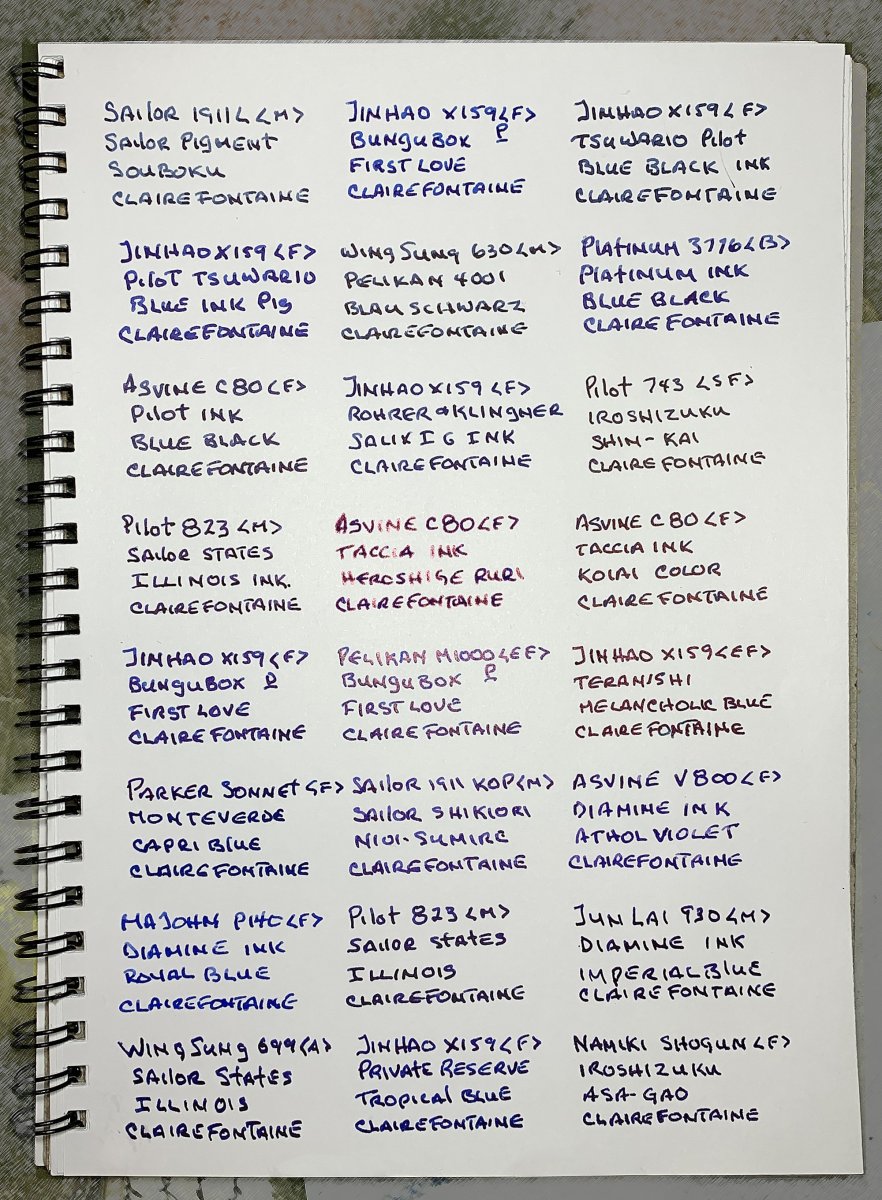 SAilOR 1911L <M>
SAilOR PIGMENT
SOUBOKU
CLAIREFONTAINE
JINHAO X159<F>
BUNGUBOX
FIRST LOVE
CLAIREFONTAINE
JINHAO X159<F>
TSUWARIO Pilot
BLUE BLACK INK
CLAIREFONTAINE
JINHAO X159<F>
PilOT TSUWARIO
BLUE INK Pig
CLAIREFONTAINE
WING SUNG 630<M>
PELIKAN 4001
BLAU SCHWARZ
CLAIREFONTAINE
PLATINUM 3776<B>
PLATINUM INK
BLUE BLACK
CLAIREFONTAINE
ASVINE C80<F>
Pilot INK
BLUE BLACK
CLAIREFONTAINE
JINHAO X159<F>
ROHRER & KLINGNER
SALIX IG INK
CLAIREFONTAINE
Pilot 743 <SF>
IROSHIZUKU
SHIN-KAI
CLAIREFONTAINE
Pilot 823 <M>
SAilOR STATES
ILLINOIS INK.
CLAIREFONTAINE
ASVINE C80<F>
TACCIA INK
HEROSHIGE RURI
CLAIREFONTAINE
ASVINE C80<F>
TACCIA INK
KOIAI COLOR
CLAIREFONTAINE
JINHAO X159<F>
BUNGUBOX
FIRST LOVE
CLAIREFONTAINE
PELIKAN M1000<EF>
BUNGUBOX
FIRST LOVE
CLAIREFONTAINE
JINHAO X159<EF>
TERANISHI
MELANCHOLIC BLUE
CLAIREFONTAINE
PARKER SONNET <F>
MONTEVERDE
CAPRI BlUE
CLAIREFONTAINE
SAilOR 1911 KOP<M>
SAilOR SHIKIORI
NIOI-SUMIRE
CLAIREFONTAINE
ASVINE V800<F>
DIAMINE INK
ATHOL VIOLET
CLAIREFONTAINE
MAJOHN P140<F>
DIAMINE INK
ROYAL BLUE
CLAIREFONTAINE
Pilot 823 <M>
SAilOR StatES
ILLINOIS
CLAIREFONTAINE
JUN LAI 930<M>
DIAMINE INK
IMPERIAL BlUE
CLAIREFONTAINE
WING SUNG 699<A>
SAilOR StatES
ILLINOIS
CLAIREFONTAINE
JINHAO X159<F>
PRIVATE RESERVE
TROPICAl BLUE
CLAIREFONTAINE
NAMIKI SHOGUN<F>
IROSHIZUKU
ASA-GAO
CLAIREFONTAINE